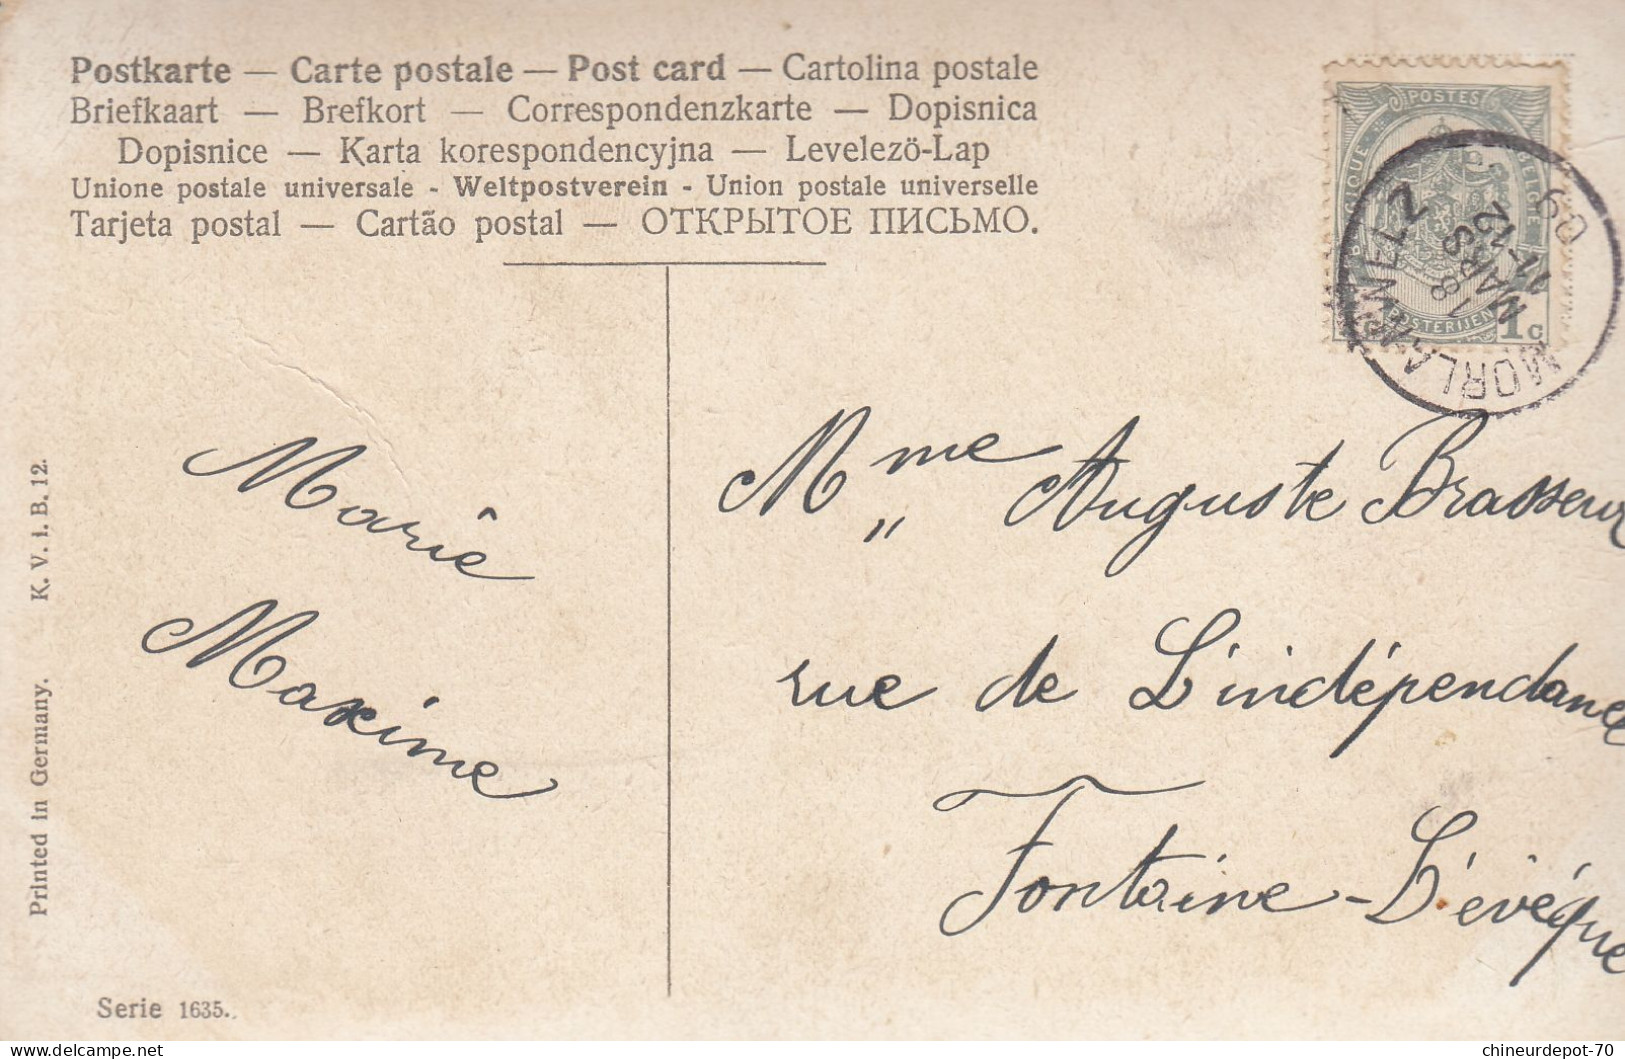 Postkarte — Carte postale — Post card — Cartolina postale
Briefkaart — Brefkort — Correspondenzkarte — Dopisnica
Dopisnice — Karta korespondencyjna — Levelezö-Lap
Unione postale universale - Weltpostverein - Union postale universelle
Tarjeta postal — Cartão postal — ОТКРЫТОЕ ПИСЬМО.
POSTES
BELGIQUE
BELGIE
POSTERIJEN
1c
MORLANWELZ
18 MARS
11-12
09
Marie
Maxime
Mme Auguste Brasseur
rue de L'indépendance
Fontaine-L'évêque
Printed in Germany. K. V. i. B. 12.
Serie 1635.
chineurdepot-70